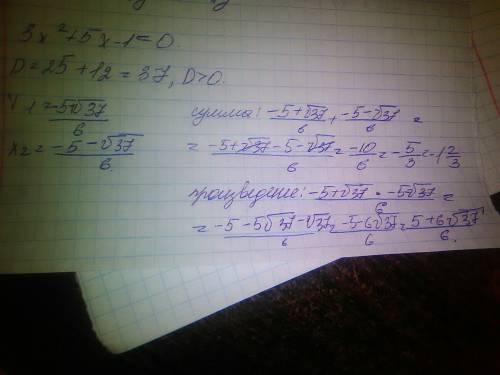 3x²+5x-1=0
D=25+12=37, D>0.
x1=-5√37/6
x2=-5-√37/6.
сумма: -5+√37/6 + -5-√37/6 =
= -5+√37-5-√37/6 = -10/6 = -5/3 = -1 2/3
произведение: -5+√37 · -5√37/6 =
= -5-5√37-√37/6 = -5-6√37/6 = 5+6√37/6.